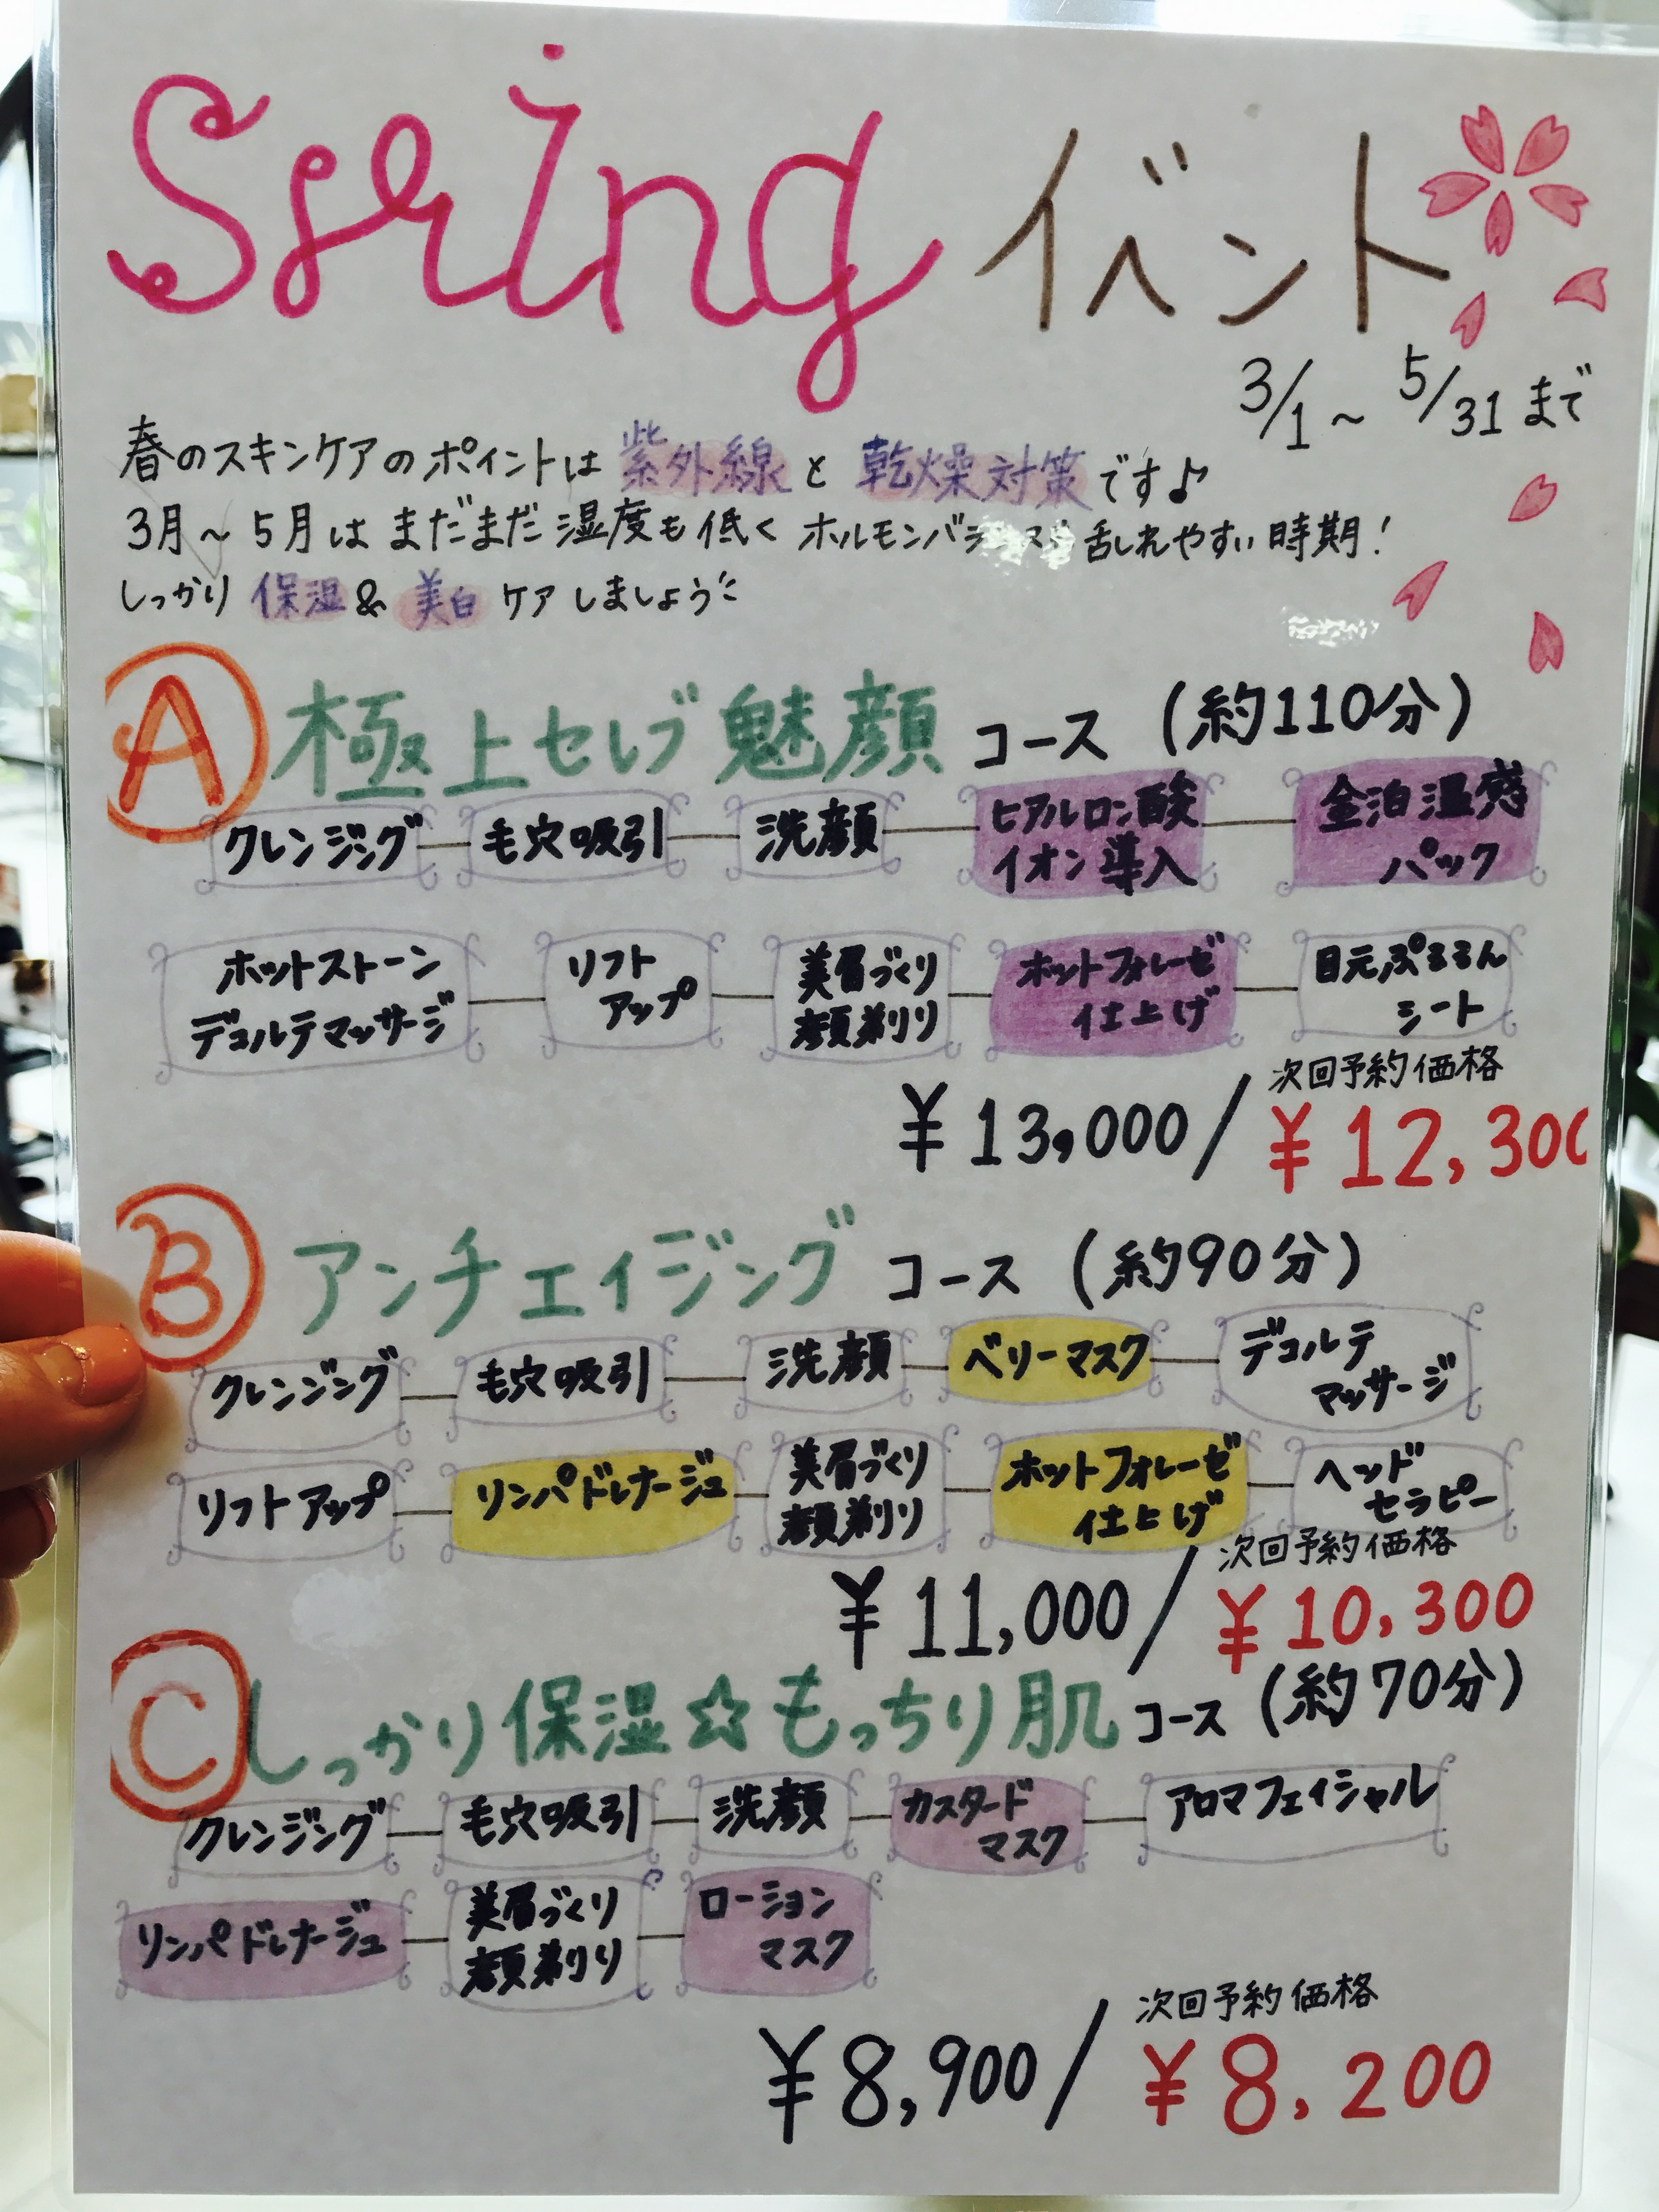 Spring イベント
3/1~5/31まで
春のスキンケアのポイントは紫外線と乾燥対策です♪
3月~5月はまだまだ湿度も低くホルモンバランスも乱れやすい時期!
しっかり保湿&美白ケアしましょう
A 極上セレブ魅顔コース (約110分)
クレンジング 毛穴吸引 洗顔 ヒアルロン酸 金泊温感
イオン導入 パック
ホットストーン リフト 美眉づくり ホットフォレーゼ 目元ぷるるん
デコルテマッサージ アップ 顔剃り 仕上げ シート
次回予約価格
¥13,000/¥12,300
B アンチエイジングコース (約90分)
クレンジング 毛穴吸引 洗顔 ベリーマスク デコルテ
マッサージ
リフトアップ リンパドレナージュ 美眉づくり ホットフォレーゼ ヘッド
顔剃り 仕上げ セラピー
次回予約価格
¥11,000/¥10,300
C しっかり保湿☆もっちり肌コース (約70分)
クレンジング 毛穴吸引 洗顔 カスタード アロマフェイシャル
マスク
リンパドレナージュ 美眉づくり ローション
顔剃り マスク
次回予約価格
¥8,900/¥8,200